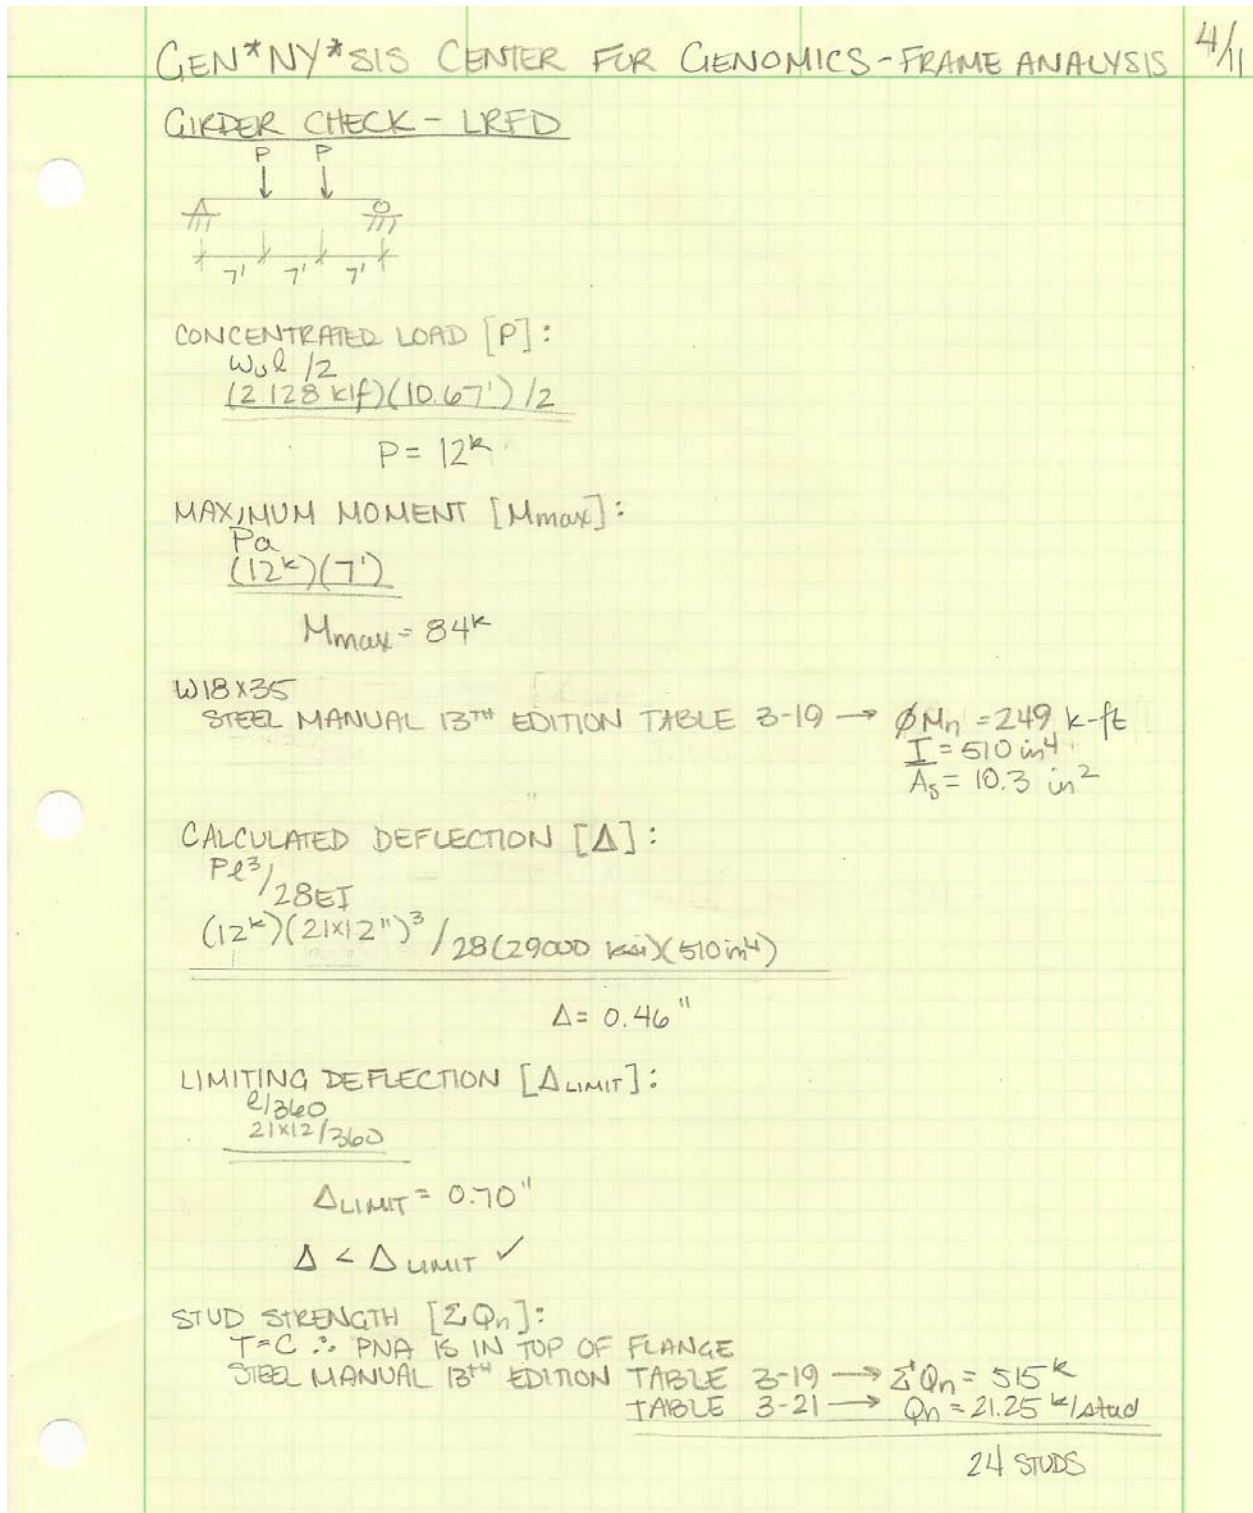 GEN*NY*SIS CENTER FOR GENOMICS-FRAME ANALYSIS 4/11
GIRDER CHECK - LRFD
P P
7' 7' 7'
CONCENTRATED LOAD [P]:
Wul/2
(2.128 klf)(10.67')/2
P = 12ᵏ
MAXIMUM MOMENT [Mmax]:
Pa
(12ᵏ)(7')
Mmax = 84ᵏ
W18X35
STEEL MANUAL 13TH EDITION TABLE 3-19 → ØMn = 249 k-ft
I = 510 in⁴
As = 10.3 in²
CALCULATED DEFLECTION [Δ]:
Pl³/28EI
(12ᵏ)(21x12")³/28(29000 ksi)(510in⁴)
Δ = 0.46"
LIMITING DEFLECTION [ΔLIMIT]:
l/360
21x12/360
ΔLIMIT = 0.70"
Δ < ΔLIMIT ✓
STUD STRENGTH [ΣQn]:
T=C ∴ PNA IS IN TOP OF FLANGE
STEEL MANUAL 13TH EDITION TABLE 3-19 → ΣQn = 515ᵏ
TABLE 3-21 → Qn = 21.25 ᵏ/stud
24 STUDS